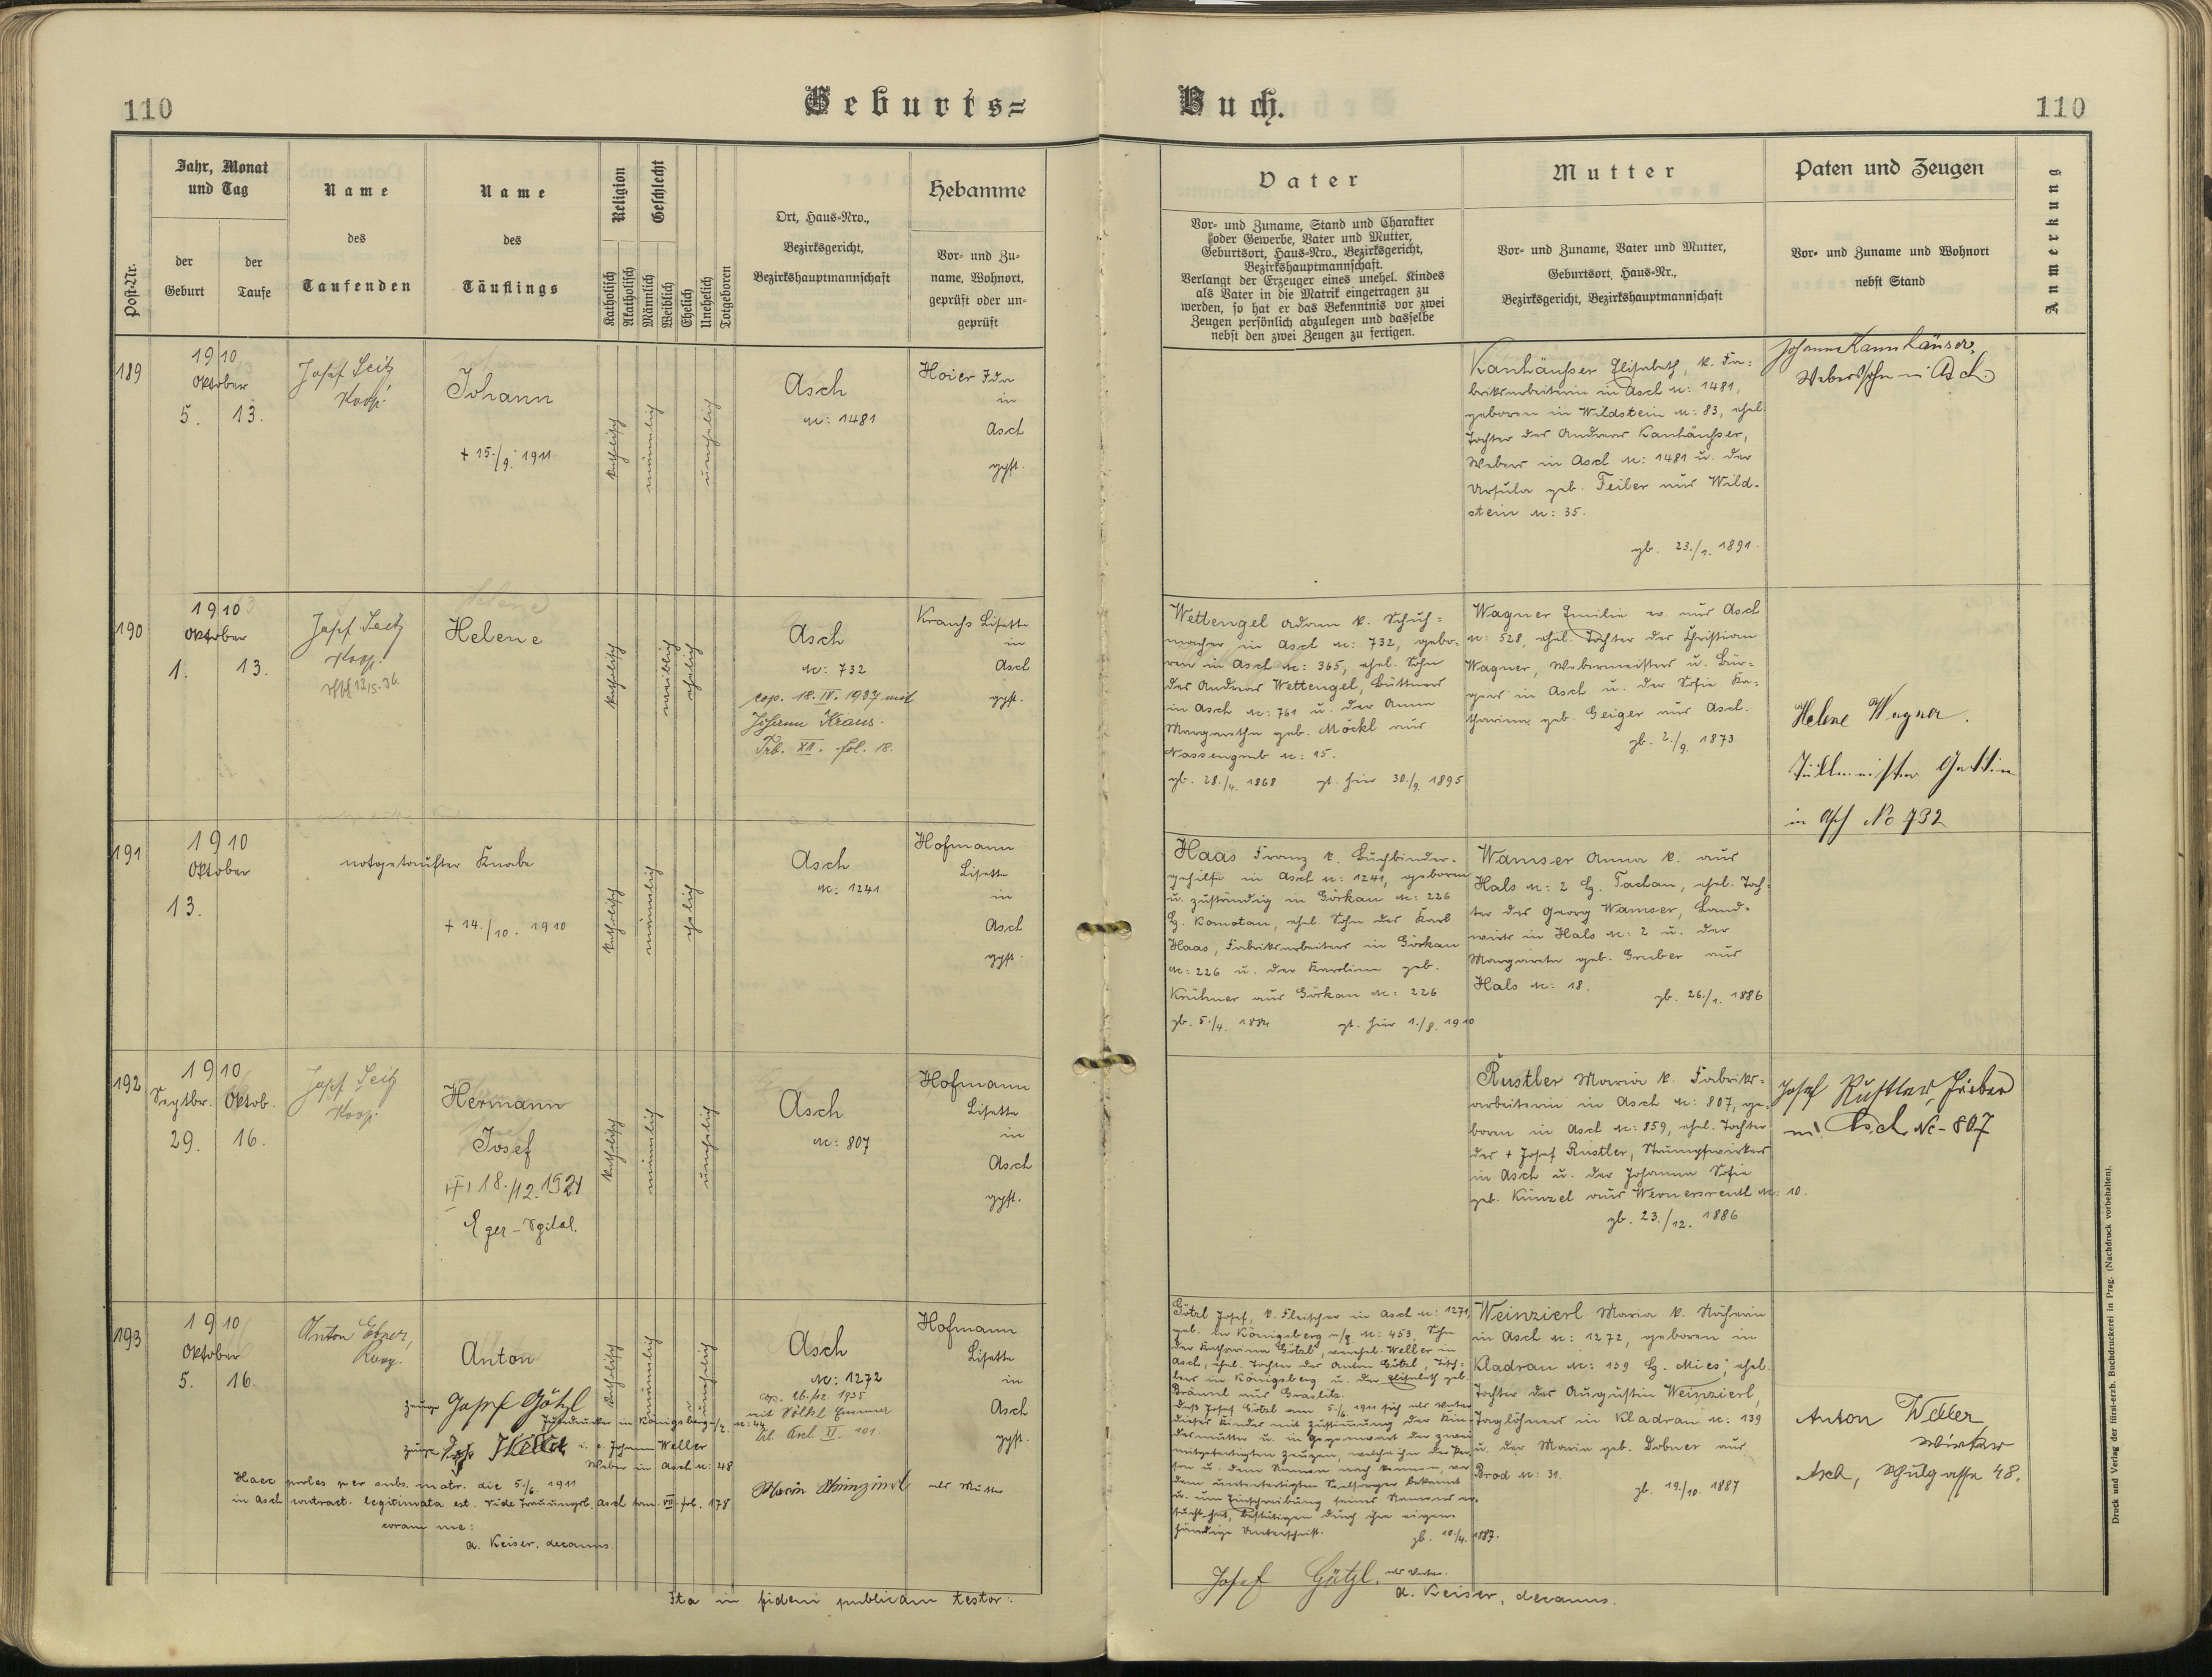 110
Geburts=
Buch.
110
Post-Nr.
Jahr, Monat
und Tag
der
Geburt
der
Taufe
Name
des
Taufenden
Name
des
Täuflings
Religion
Geschlecht
Katholisch
Akatholisch
Männlich
Weiblich
Ehelich
Unehelich
Totgeboren
Ort, Haus-Nro.,
Bezirksgericht,
Bezirkshauptmannschaft
Hebamme
Vor- und Zu-
name, Wohnort,
geprüft oder un-
geprüft
Vater
Vor- und Zuname, Stand und Charakter
oder Gewerbe, Vater und Mutter,
Geburtsort, Haus-Nro., Bezirksgericht,
Bezirkshauptmannschaft.
Verlangt der Erzeuger eines unehel. Kindes
als Vater in die Matrik eingetragen zu
werden, so hat er das Bekenntnis vor zwei
Zeugen persönlich abzulegen und dasselbe
nebst den zwei Zeugen zu fertigen.
Mutter
Vor- und Zuname, Vater und Mutter,
Geburtsort, Haus-Nr.,
Bezirksgericht, Bezirkshauptmannschaft
Paten und Zeugen
Vor- und Zuname und Wohnort
nebst Stand
Anmerkung
189
1910
Oktober
5. 13.
Josef Seitz
Koop.
Johann
+ 15./9. 1911
katholisch
männlich
unehelich
Asch
N: 1481
Hoier Ida
in
Asch
gpft.
Kanhäußer Elisabeth, k. Fa-
briksarbeiterin in Asch N: 1481,
geboren in Wildstein N: 83, ehel.
Tochter des Andreas Kanhäußer,
Webers in Asch N: 1481 u. der
Ursula geb. Feiler aus Wild-
stein N: 35.
gb. 23./1. 1891.
Johann Kannhäuser,
Weberssohn in Asch.
190
1910
Oktober
1. 13.
Josef Seitz
Koop.
Helene
katholisch
weiblich
ehelich
Asch
N: 732
cop. 18. IV. 1937 mit
Johann Kraus.
Trb. XII. fol. 18.
Krauß Lisette
in
Asch
gpft.
Wettengel Adam k. Schuh-
macher in Asch N: 732, gebo-
ren in Asch N: 365, ehel. Sohn
des Andreas Wettengel, Büttners
in Asch N: 761 u. der Anna
Margaretha geb. Möckl aus
Nassengrub N: 15.
gb. 28./4. 1868 gt. hier 30./9. 1895
Wagner Emilie ev. aus Asch
N: 528, ehel. Tochter des Christian
Wagner, Webermeisters u. Bür-
gers in Asch u. der Sofie Ka-
tharina geb. Geiger aus Asch.
gb. 2./9. 1873
Helene Wagner.
Füllmeisters Gattin
in Asch No 732
191
1910
Oktober
13.
notgetaufter Knabe
+ 14./10. 1910
katholisch
männlich
ehelich
Asch
N: 1241
Hofmann
Lisette
in
Asch
gpft.
Haas Franz k. Buchbinder-
gehilfe in Asch N: 1241, geboren
u. zuständig in Görkau N: 226
Bz. Komotau, ehel. Sohn des Karl
Haas, Fabriksarbeiters in Görkau
N: 226 u. der Karolina geb.
Krühner aus Görkau N: 226
gb. 5./4. 1884 gt. hier 1./8. 1910
Wamser Anna k. aus
Hals N: 2 Bz. Tachau, ehel. Toch-
ter des Georg Wamser, Land-
wirts in Hals N: 2 u. der
Margareta geb. Gruber aus
Hals N: 18.
gb. 26./1. 1886
192
1910
Septbr. Oktob.
29. 16.
Josef Seitz
Koop.
Hermann
Josef
18./12. 1921
Eger-Spital.
katholisch
männlich
unehelich
Asch
N: 807
Hofmann
Lisette
in
Asch
gpft.
Rustler Maria k. Fabriks-
arbeiterin in Asch N: 807, ge-
boren in Asch N: 859, ehel. Tochter
des + Josef Rustler, Strumpfwirkers
in Asch u. der Johanna Sofie
geb. Künzel aus Wernersreuth N: 10.
gb. 23./12. 1886
Josef Rustler, Färber
in Asch No- 807
193
1910
Oktober
5. 16.
Anton Ebner,
Koop.
Anton
katholisch
männlich
unehelich
Asch
N: 1272
cop. 26./12. 1935
mit Völkl Emma
Trb. Asch XI. 101
Hofmann
Lisette
in
Asch
gpft.
Zeuge Josef Götzl
in Königsberg a/E. N: 44
Zeuge Weller i. e. Johann Weller
Weber in Asch N: 48
Haec proles per subs. matr. die 5./6. 1911
in Asch contract. legitimata est. Vide Trauungsb. Asch tom. VII. fol. 178
coram me:
A. Keiser, decanus.
Maria Weinzierl als Mutter
Götzl Josef, k. Fleischer in Asch N: 1271,
geb. in Königsberg a/E. N: 453, Sohn
der Katharina Götzl, verehel. Weller in
Asch, ehel. Tochter des Anton Götzl, Tisch-
lers in Königsberg u. der Elisabeth geb.
Bräunl aus Graslitz.
Daß Josef Götzl am 5./6. 1911 sich als Vater
dieses Kindes mit Zustimmung der Kin-
desmutter u. in Gegenwart der zwei
mitgefertigten Zeugen, welche ihn der Per-
son u. dem Namen nach kennen, vor
dem unterfertigten Seelsorger bekannt
u. um Einschreibung seines Namens er-
sucht hat, bestätigen durch ihre eigen-
händige Unterschrift. gb. 10./4. 1887.
Josef Götzl, als Vater.
Weinzierl Maria k. Näherin
in Asch N: 1272, geboren in
Kladrau N: 139 Bz. Mies, ehel.
Tochter des Augustin Weinzierl,
Taglöhners in Kladrau N: 139
u. der Maria geb. Dobner aus
Brod N: 31.
gb. 19./10. 1887
Anton Weller
Wirker
Asch, Schulgasse 48.
Ita in fidem publicam testor:
A. Keiser, decanus.
Druck und Verlag der fürst-erzb. Buchdruckerei in Prag. (Nachdruck vorbehalten).